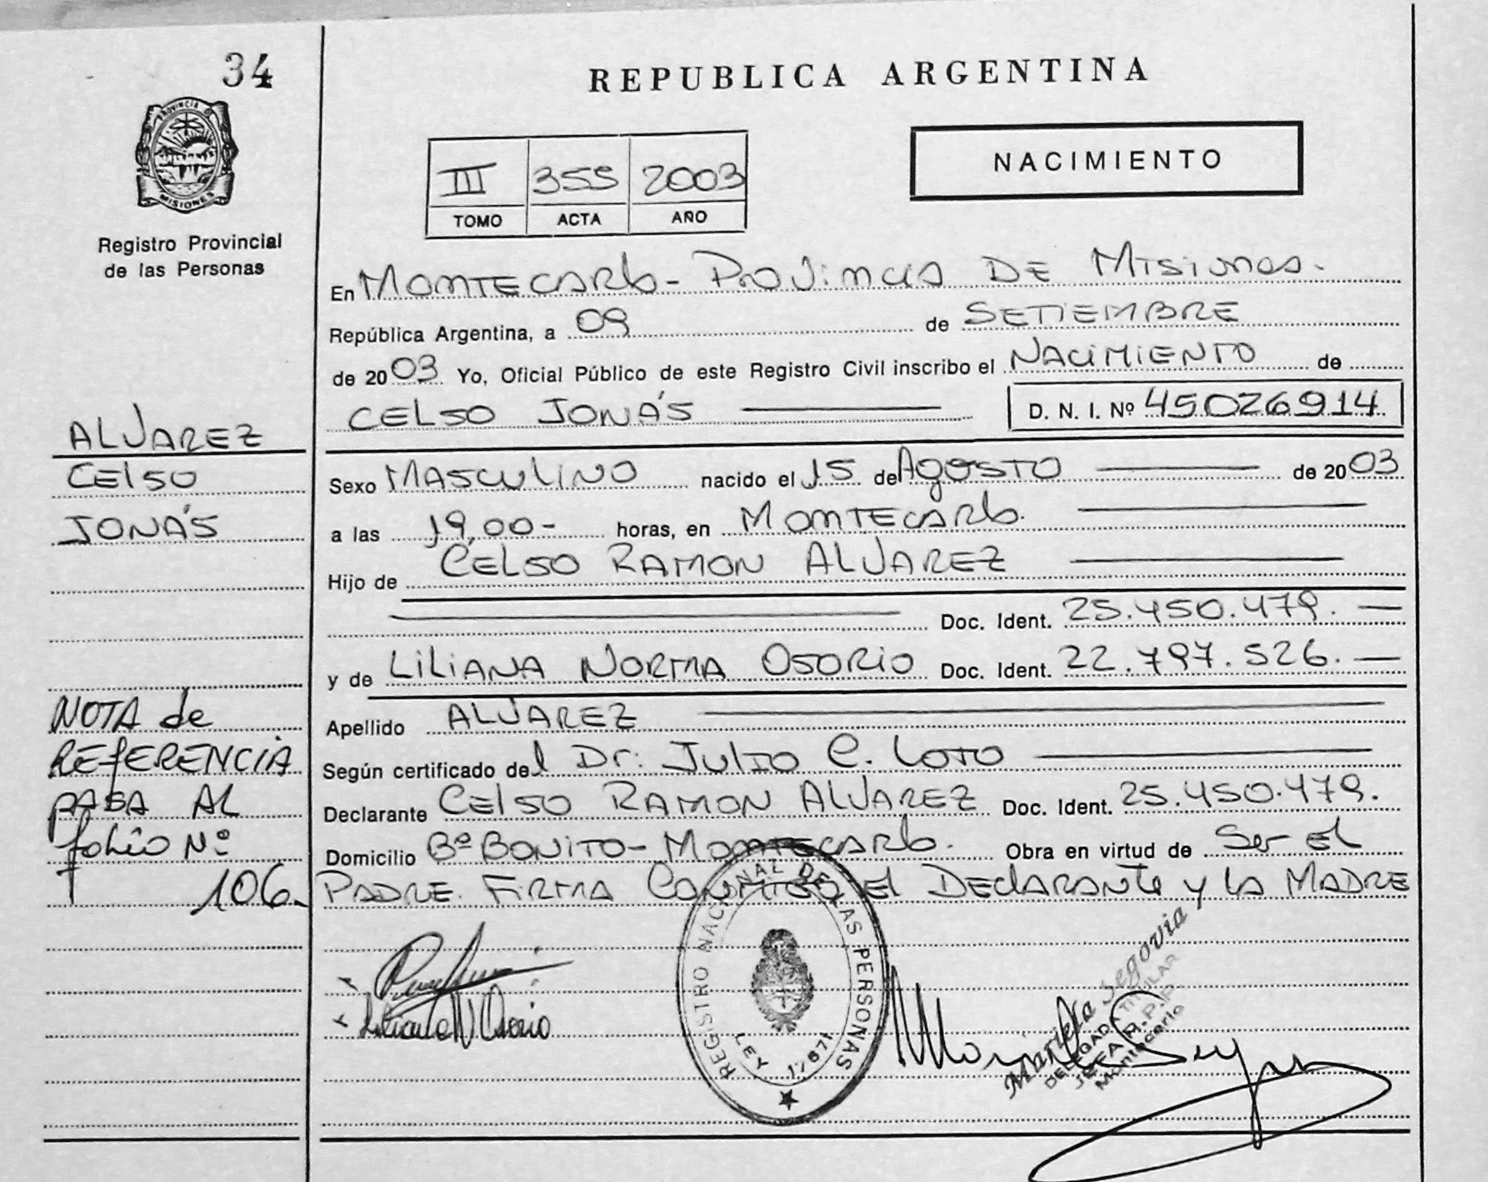 34
REPUBLICA ARGENTINA
PROVINCIA D
MISIONES
Registro Provincial
de las Personas
III 355 2003
TOMO ACTA AÑO
NACIMIENTO
En MONTECARlo - PROVINCIA DE MISIONES.-
República Argentina, a 09 de SETIEMBRE
de 2003 Yo, Oficial Público de este Registro Civil inscribo el NACIMIENTO de
CELSO JONÁS D. N. I. Nº 45026914
Sexo MASCULINO nacido el 15 de AGOSTO de 2003
a las 19,00- horas, en MONTECARlo.
Hijo de CELSO RAMON ALVAREZ
Doc. Ident. 25.450.479.-
y de LILIANA NORMA OSORIO Doc. Ident. 22.797.526.-
Apellido ALVAREZ
Según certificado del Dr: JULIO C. LOTO
Declarante CELSO RAMON ALVAREZ Doc. Ident. 25.450.479.
Domicilio Bº BONITO - MONTECARlo. Obra en virtud de Ser El
PADRE. FIRMA CONMIGO El DEClARANte y LA MADRE
ALVAREZ
CElso
JONÁS
NOTA de
REfERENCIA
PASA AL
folio Nº
106.
Liliana N. Osorio
REGISTRO NACIONAL DE LAS PERSONAS
LEY 17671
Mariela Segovia
DELEGADA TITULAR
JEFA R.P.P.
Montecarlo